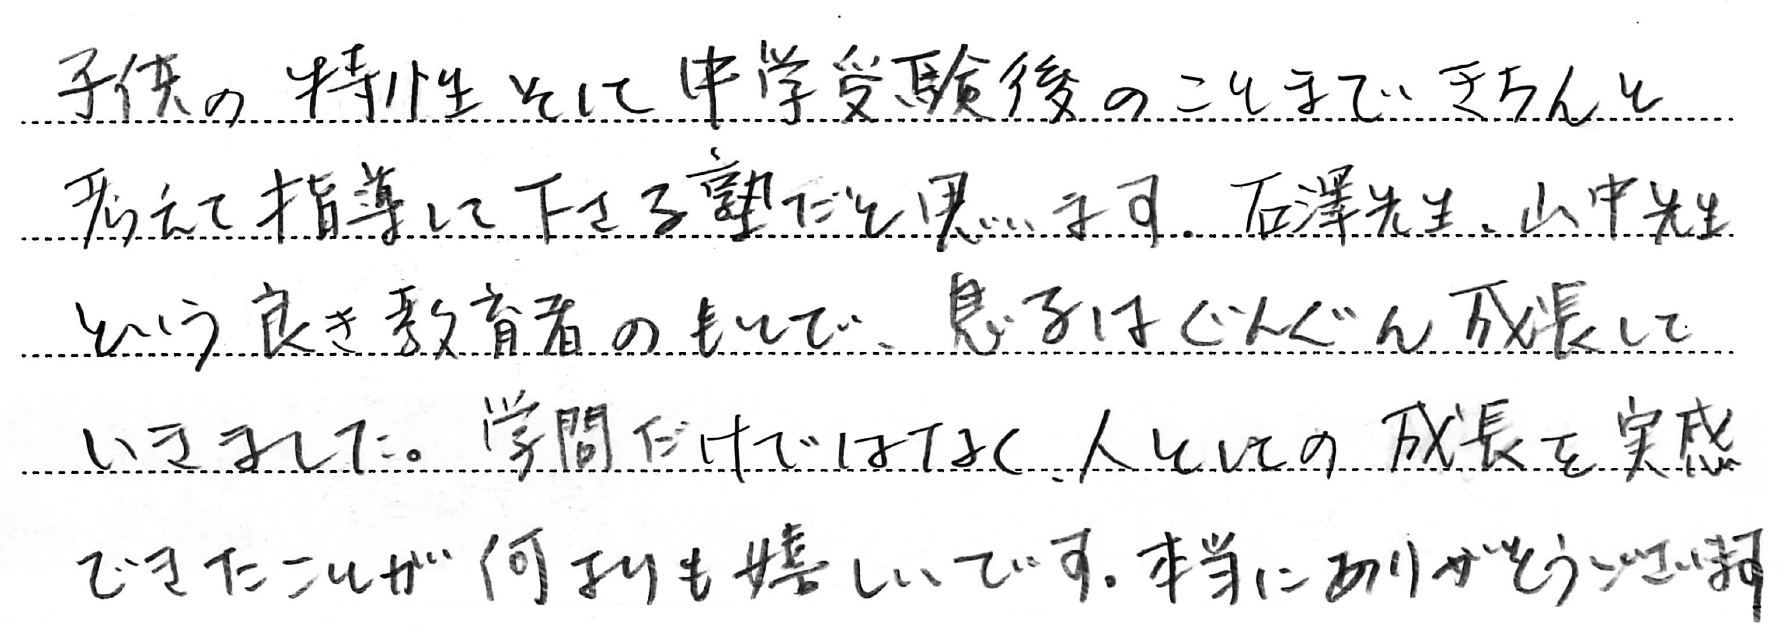 子供の特性そして中学受験後のことまできちんと
考えて指導して下さる塾だと思います。石澤先生、山中先生
という良き教育者のもとで、息子はぐんぐん成長して
いきました。学問だけではなく、人としての成長を実感
できたことが何よりも嬉しいです。本当にありがとうございます